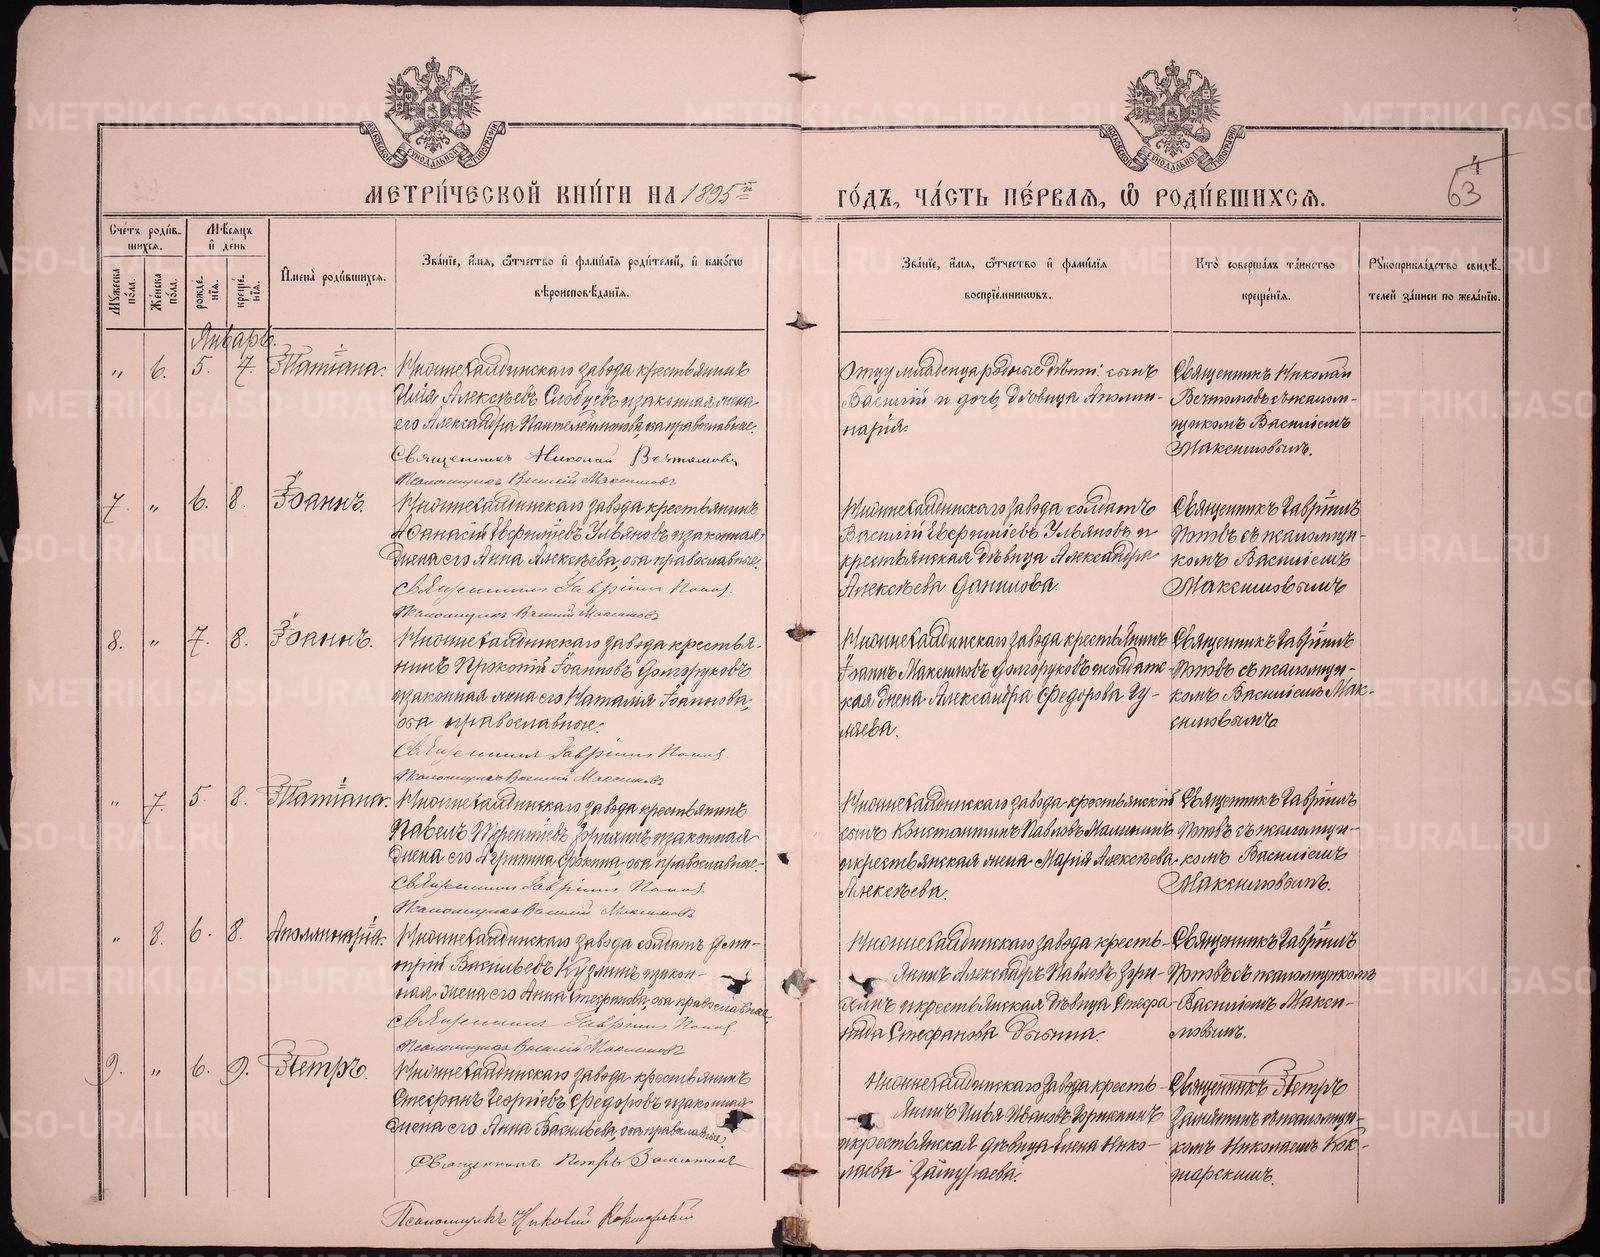 МЕТРИ́ЧЕСКОЙ КНИ́ГИ НА 1895й
ГО́ДЪ, ЧА́СТЬ ПЕ́РВАЯ, Ѽ РОДИ́ВШИХСЯ.
4
63
Сче́тъ роди́в-
шихся.
Мѣсяцъ
и҆ де́нь
Мꙋжеска по́ла.
Же́нска по́ла.
рожде́-
нїя.
креще́-
нїя.
И҆мена̀ роди́вшихся.
Зва́нїе, и҆́мя, ѻ҆́тчество и҆ фамі́лїя роди́телей, и҆ како́гѡ
вѣроисповѣ́данїя.
Зва́нїе, и҆́мя, ѻ҆́тчество и҆ фамі́лїя
воспрїе́мникѡвъ.
Кто̀ соверша́лъ та́инство
креще́нїя.
Рꙋкоприкла́дство свидѣ́-
телей за́писи по жела́нїю.
Январь.
„ 6. 5. 7. Татіана.
Нижнесалдинскаго завода крестьянинъ
Илія Алексѣевъ и законная жена
его Александра Пантелеимонова, оба православные.
Священникъ Николай
Псаломщикъ Василій Максимовъ
Отцу младенца родные дѣти: сынъ
Василій и дочь, дѣвица Аполли-
нарія.
Священникъ Николай
съ псалом-
щикомъ Василіемъ
Максимовымъ.
7. „ 6. 8. Іоаннъ.
Нижнесалдинскаго завода крестьянинъ
Аѳанасій Ульяновъ и законная
жена его Анна Алексѣева, оба православные.
Священникъ Гавріилъ Поповъ.
Псаломщикъ Василій Максимовъ
Нижнесалдинскаго завода солдатъ
Василій Ульяновъ и
крестьянская дѣвица Александра
Алексѣева Данилова.
Священникъ Гавріилъ
Поповъ съ псаломщи-
комъ Василіемъ
Максимовымъ
8. „ 7. 8. Іоаннъ.
Нижнесалдинскаго завода крестья-
нинъ Прокопій Іоанновъ Долгоруковъ
и законная жена его Наталія Іоаннова,
оба православные.
Священникъ Гавріилъ Поповъ.
Псаломщикъ Василій Максимовъ
Нижнесалдинскаго завода крестьянинъ
Іоаннъ Максимовъ Долгоруковъ и солдатс-
кая жена Александра Ѳедорова Гу-
ляева.
Священникъ Гавріилъ
Поповъ съ псаломщи-
комъ Василіемъ Мак-
симовымъ
„ 7. 5. 8. Татіана.
Нижнесалдинскаго завода крестьянинъ
Павелъ Терентіевъ Зорихинъ и законная
жена его Агрипина Фокина, оба православные.
Священникъ Гавріилъ Поповъ.
Псаломщикъ Василій Максимовъ
Нижнесалдинскаго завода крестьянскій
сынъ Константинъ Павловъ Малыгинъ
и крестьянская жена Марія Алексѣева
Алексѣева.
Священникъ Гавріилъ
Поповъ съ псаломщи-
комъ Василіемъ
Максимовымъ.
„ 8. 6. 8. Аполлинарія.
Нижнесалдинскаго завода солдатъ Дими-
трій Васильевъ Кузминъ и закон-
ная жена его Анна Стефанова, оба православные.
Священникъ Гавріилъ Поповъ
Псаломщикъ Василій Максимовъ
Нижнесалдинскаго завода кресть-
янинъ Александръ Павловъ Зори-
хинъ и крестьянская дѣвица Стефа-
нида Стефанова
Священникъ Гавріилъ
Поповъ съ псаломщикомъ
Василіемъ Макси-
мовымъ.
9. „ 6. 9. Петръ.
Нижнесалдинскаго завода крестьянинъ
Стефанъ Георгіевъ Ѳедоровъ и законная
жена его Анна Васильева, оба православные
Священникъ Петръ Замятинъ
Псаломщикъ Николай
Нижнесалдинскаго завода кресть-
янинъ Илья Ивановъ
и крестьянская дѣвица Елена Нико-
лаева
Священникъ Петръ
Замятинъ съ псаломщи-
комъ Николаемъ
METRIKI.GASO-URAL.RU